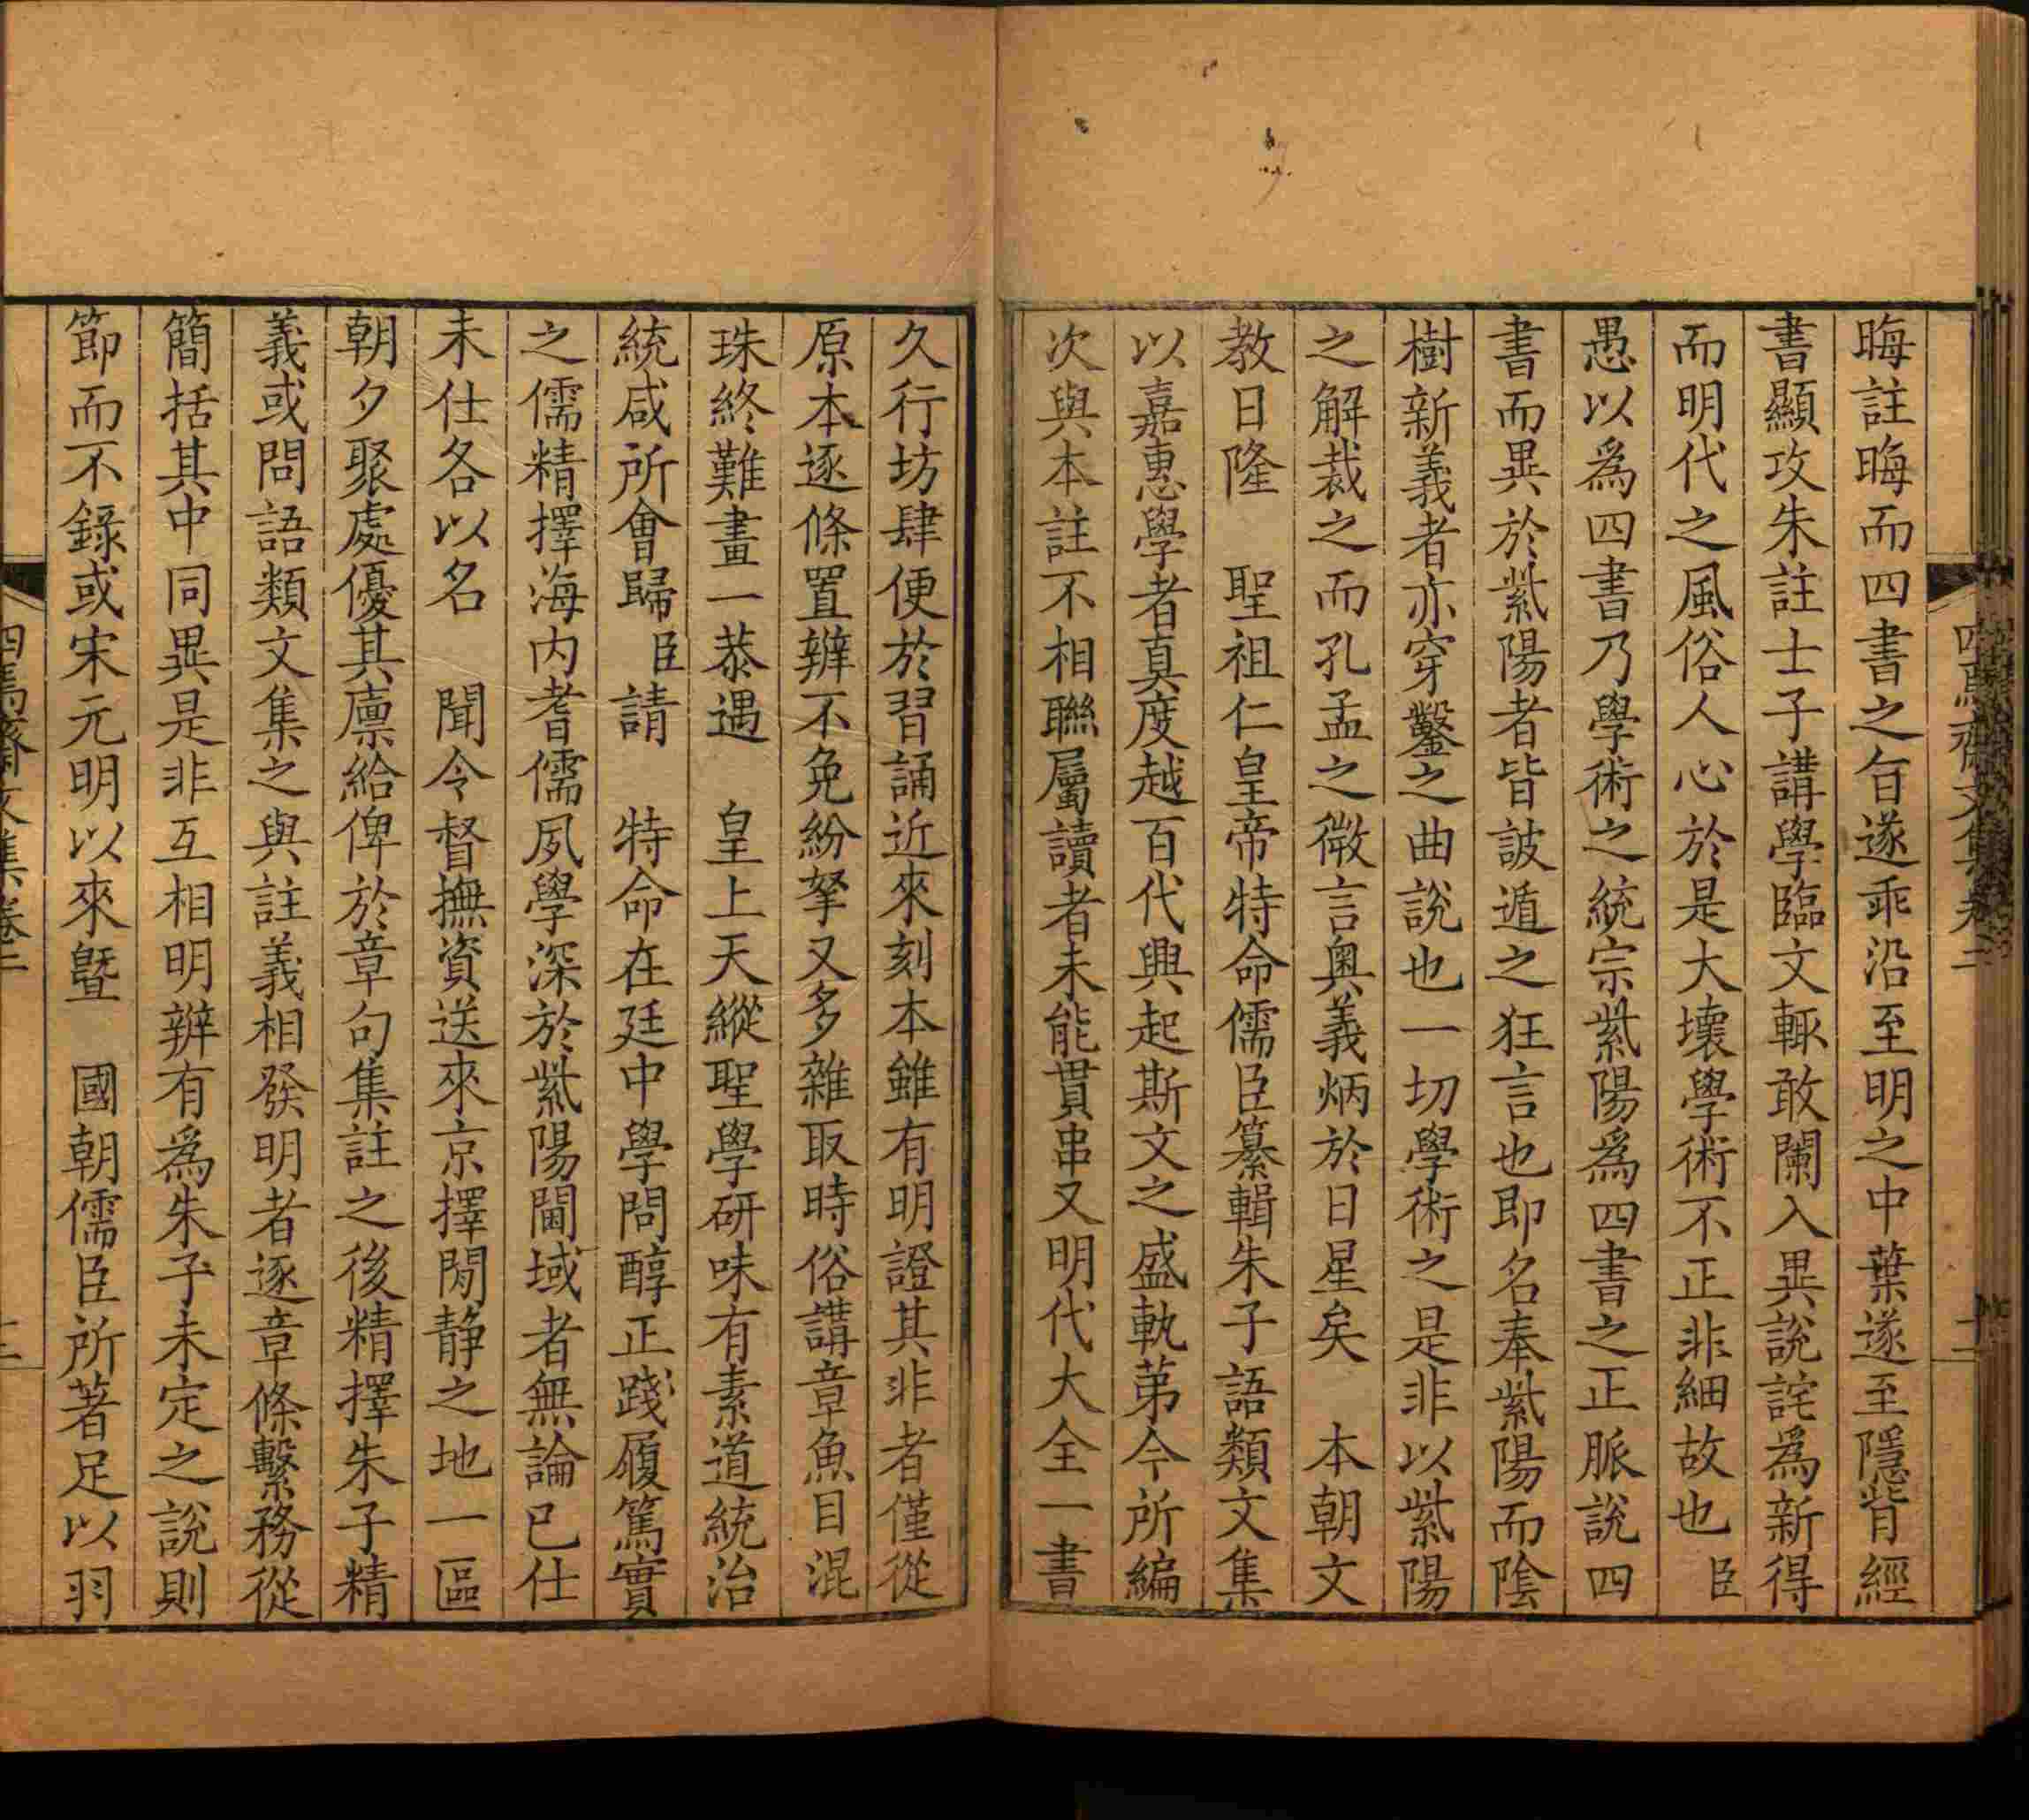 晦註晦而四書之旨遂乖沿至明之中葉遂至隱背經
書顯攻朱註士子講學臨文輒敢闌入異說詫為新得
而明代之風俗人心於是大壞學術不正非細故也臣
愚以為四書乃學術之統宗紫陽為四書之正脈說四
書而異於紫陽者皆詖遁之狂言也即名奉紫陽而陰
樹新義者亦穿鑿之曲說也一切學術之是非以紫陽
之解裁之而孔孟之微言奧義炳於日星矣　本朝文
教日隆　聖祖仁皇帝特命儒臣纂輯朱子語類文集
以嘉惠學者真度越百代興起斯文之盛軌第今所編
次與本註不相聯屬讀者未能貫串又明代大全一書
久行坊肆便於習誦近來刻本雖有明證其非者僅從
原本逐條置辨不免紛拏又多雜取時俗講章魚目混
珠終難畫一恭遇　皇上天縱聖學研味有素道統治
統咸所會歸臣請　特命在廷中學問醇正踐履篤實
之儒精擇海内耆儒夙學深於紫陽閫域者無論已仕
未仕各以名　聞令督撫資送來京擇閒靜之地一區
朝夕聚處優其廩給俾於章句集註之後精擇朱子精
義或問語類文集之與註義相發明者逐章條繫務從
簡括其中同異是非互相明辨有為朱子未定之說則
節而不錄或宋元明以來暨　國朝儒臣所著足以羽